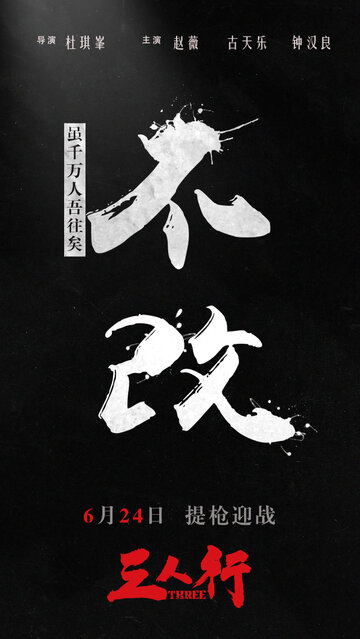 导演 杜琪峯 主演 赵薇 古天乐 钟汉良
虽千万人吾往矣
不
改
6月24日 提枪迎战
三人行
THREE